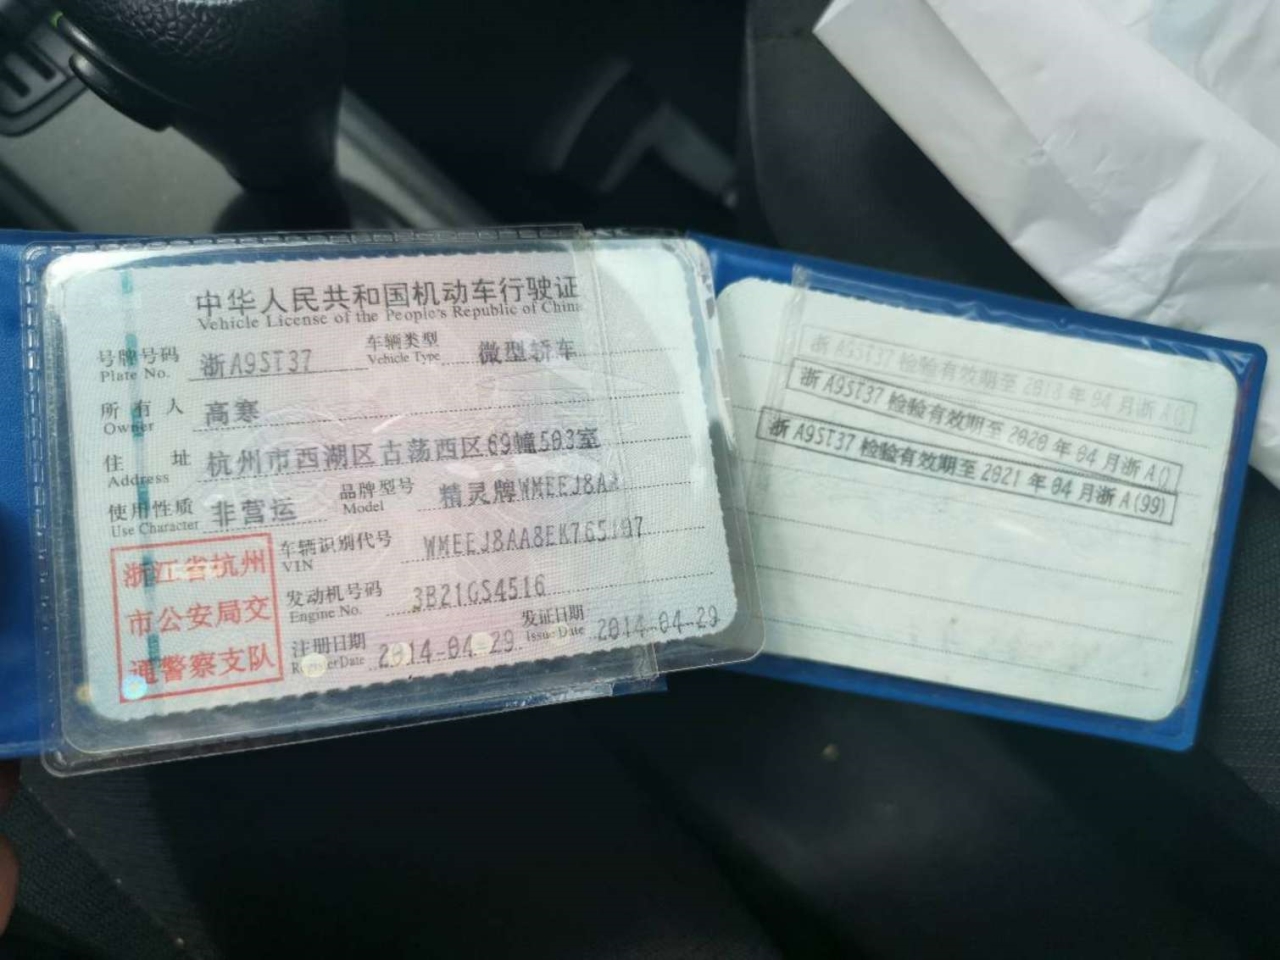 中华人民共和国机动车行驶证
Vehicle License of the People's Republic of China
号牌号码 浙A9ST37 车辆类型 微型轿车
Plate No. Vehicle Type
所有人 高寒
Owner
住址 杭州市西湖区古荡西区69幢503室
Address
使用性质 非营运 品牌型号 精灵牌WMEEJ8AA
Use Character Model
车辆识别代号 WMEEJ8AA8EK765197
VIN
发动机号码 3B21GS4516
Engine No.
注册日期 2014-04-29 发证日期 2014-04-29
RegisterDate Issue Date
浙江省杭州
市公安局交
通警察支队
浙A9ST37 检验有效期至 2018 年 04 月浙 A()
浙 A9ST37 检验有效期至 2020 年 04 月浙 A()
浙 A9ST37 检验有效期至 2021 年 04 月浙 A(99)